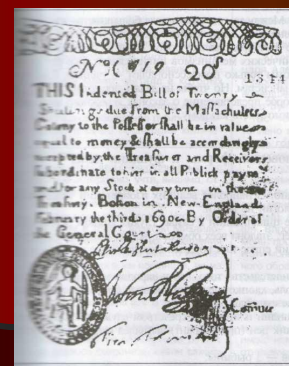 Nº( 919 20ˢ
1344
THIS Indented Bill of Twenty
Shillings due from the Massachusets
Colony to the Possessor shall be in value
equal to money & shall be accordingly
accepted by the Treasurer and Receivers
subordinate to him in all Publick paym.ᵗˢ
and for any Stock at any time in the
Treasury. Boston in New-England
February the third 1690. By Order of
the General Court
Elisha Hutchinson
Comitte